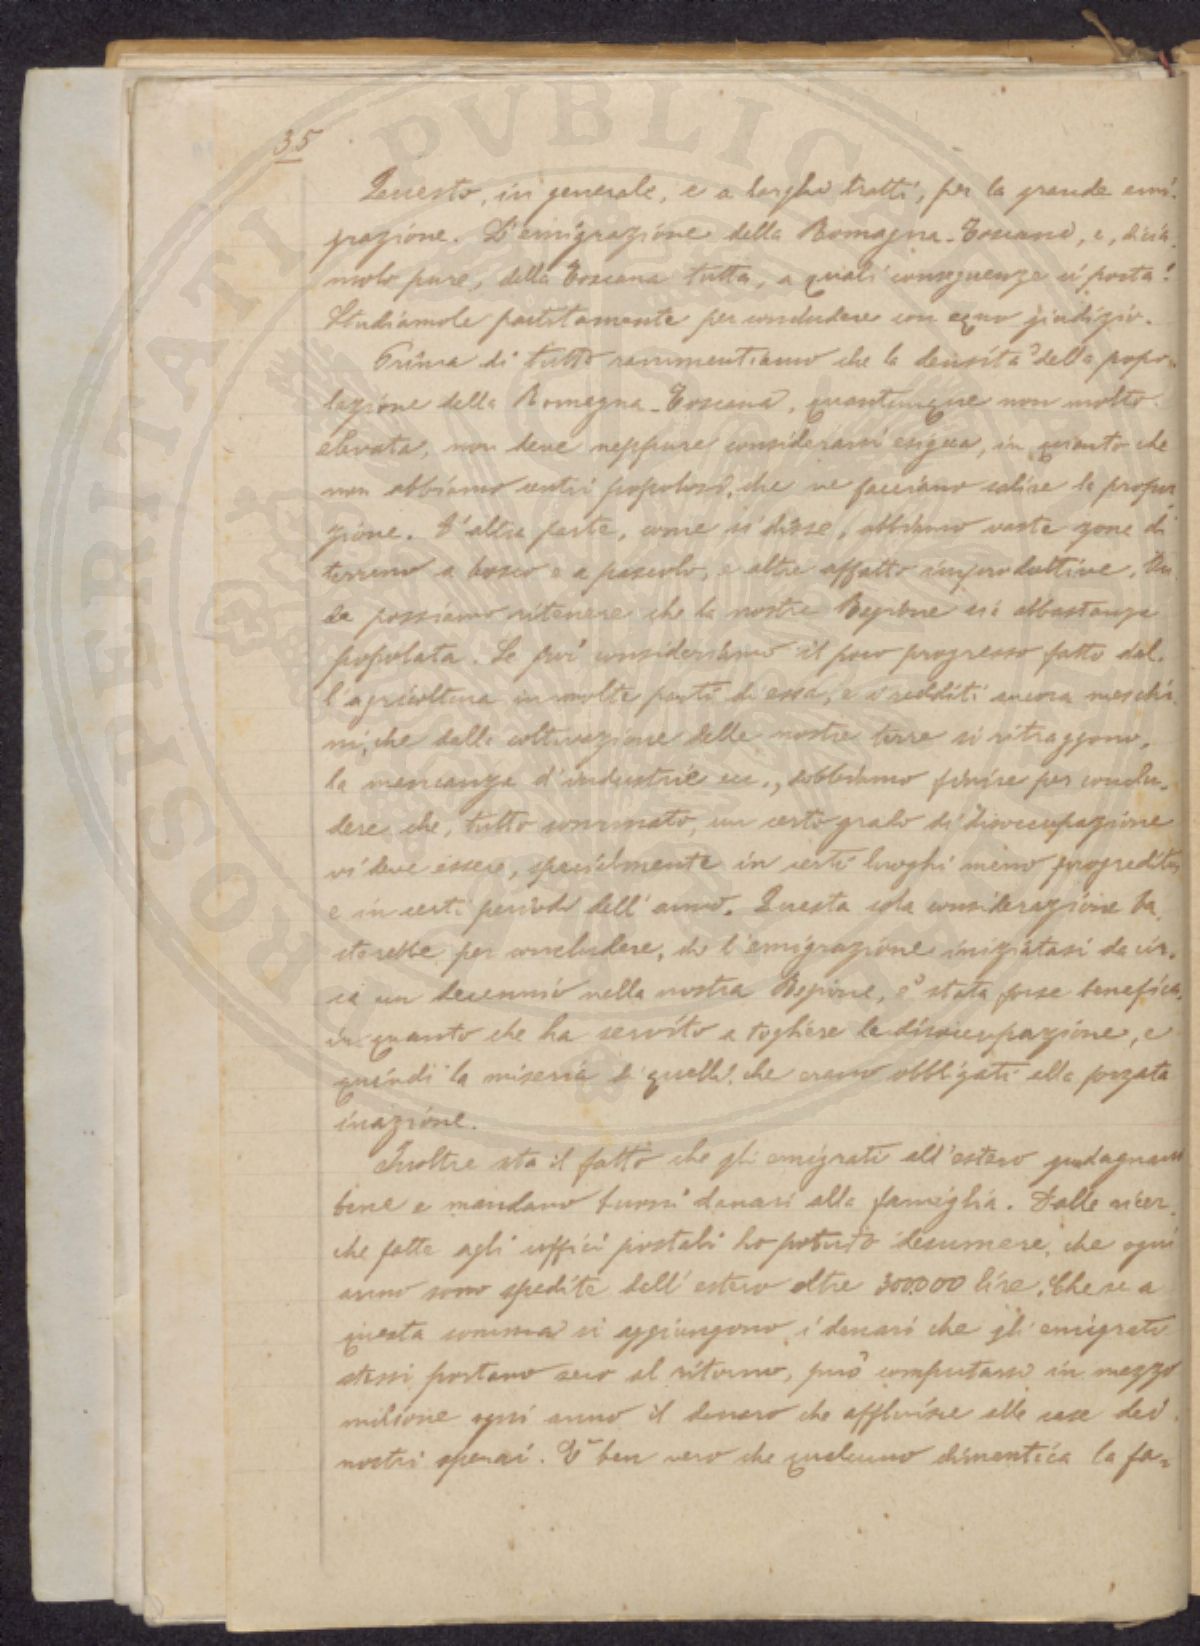 35
Questo, in generale, e a larghi tratti, per la grande emi-
grazione. L'emigrazione della Romagna-Toscana, e, dicia-
molo pure, della Toscana tutta, a quali conseguenze ci porta?
Studiamole partitamente per concludere con equo giudizio.
Prima di tutto rammentiamo che la densità della popo-
lazione della Romagna-Toscana, quantunque non molto
elevata, non deve neppure considerarsi esigua, in quanto che
non abbiamo centri popolosi, che ne facciano salire la propor
zione. D'altra parte, come si disse, abbiamo vaste zone di
terreno a bosco e a pascolo, e altre affatto improduttive. On
de possiamo ritenere che la nostra Regione sia abbastanza
popolata. Se poi consideriamo il poco progresso fatto dal-
l'agricoltura in molte parti di essa, e i redditi ancora meschi
ni, che dalla coltivazione delle nostre terre si ritraggono,
la mancanza d'industrie ecc., dobbiamo finire per conclu-
dere che, tutto sommato, un certo grado di disoccupazione
vi deve essere, specialmente in certi luoghi meno progrediti
e in certi periodi dell'anno. Questa sola considerazione ba
sterebbe per concludere, che l'emigrazione iniziatasi da cir-
ca un decennio nella nostra Regione, è stata forse benefica,
in quanto che ha servito a togliere la disoccupazione, e
quindi la miseria di quelli, che erano obbligati alla forzata
inazione.
Inoltre sta il fatto che gli emigrati all'estero guadagnano
bene e mandano buoni danari alla famiglia. Dalle ricer-
che fatte agli uffici postali ho potuto desumere, che ogni
anno sono spedite dall'estero oltre 300.000 lire. Che se a
questa somma si aggiungono i denari che gli emigrati
stessi portano seco al ritorno, può computarsi in mezzo
milione ogni anno il denaro che affluisce alle case dei
nostri operai. È ben vero che qualcuno dimentica la fa-
PROSPERITATI PVBLICAE